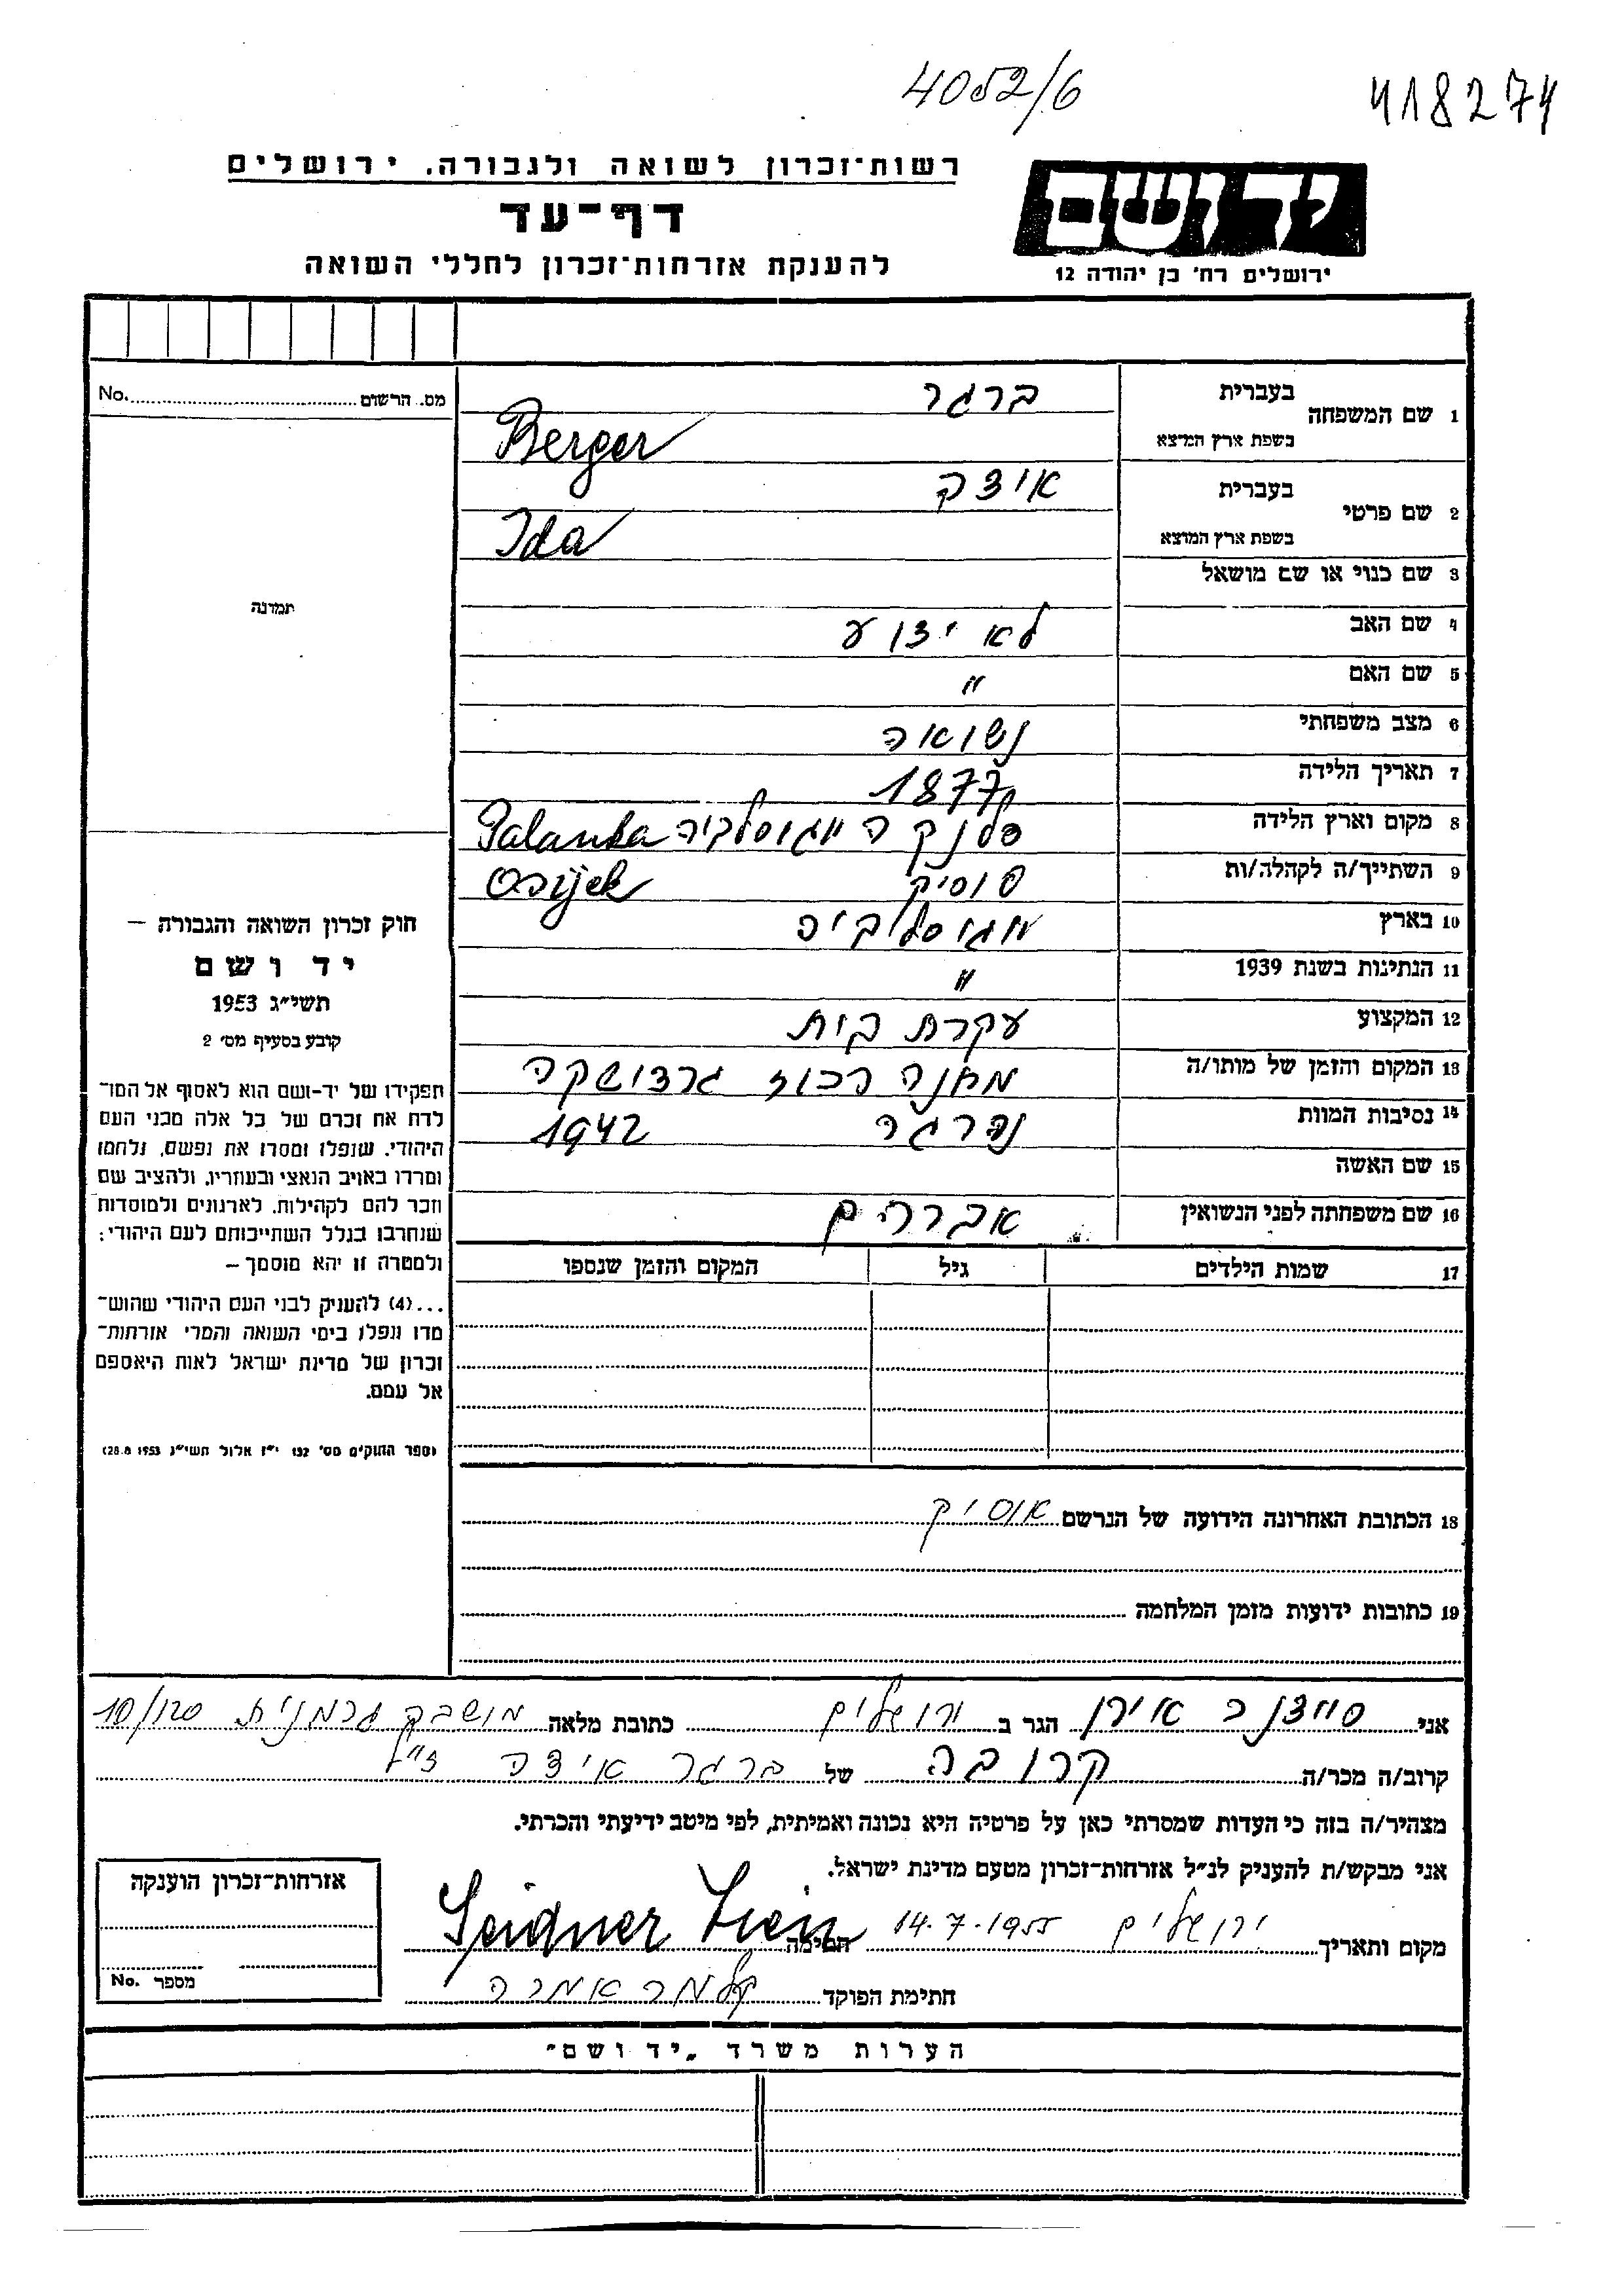 4052/6
418274
רשות־זכרון לשואה ולגבורה. ירושלים
יד ושם
דף־עד
להענקת אזרחות־זכרון לחללי השואה
ירושלים רח׳ בן יהודה 12
מס. הרשום No.
תמונה
חוק זכרון השואה והגבורה —
יד ושם
תשי״ג 1953
קובע בסעיף מס׳ 2
תפקידו של יד-ושם הוא לאסוף אל המו־
לדת את זכרם של כל אלה מבני העם
היהודי. שנפלו ומסרו את נפשם, נלחמו
ומרדו באויב הנאצי ובעוזריו, ולהציב שם
וזכר להם לקהילות, לארגונים ולמוסדות
שנחרבו בגלל השתייכותם לעם היהודי;
ולמטרה זו יהא מוסמך —
...(4) להעניק לבני העם היהודי שהוש־
מדו ונפלו בימי השואה והמרי אזרחות־
זכרון של מדינת ישראל לאות היאספם
אל עמם.
(ספר החוקים מס׳ 132 י״ז אלול תשי״ג 28.8.1953)
1 שם המשפחה בעברית ברגר
בשפת ארץ המוצא Berger
2 שם פרטי בעברית אידה
בשפת ארץ המוצא Ida
3 שם כנוי או שם מושאל
4 שם האב לא ידוע
5 שם האם "
6 מצב משפחתי נשואה
7 תאריך הלידה 1877
8 מקום וארץ הלידה פלנקה יוגוסלביה Palanka
9 השתייך/ה לקהלה/ות Osijek
10 בארץ יוגוסלביה
11 הנתינות בשנת 1939 "
12 המקצוע עקרת בית
13 המקום והזמן של מותו/ה מחנה רכוז גרדושקה
14 נסיבות המוות נהרגה 1942
15 שם האשה
16 שם משפחתה לפני הנשואין אברהם
17 שמות הילדים גיל המקום והזמן שנספו
18 הכתובת האחרונה הידועה של הנרשם אוסיק
19 כתובות ידועות מזמן המלחמה
אני סיידנר אירן הגר ב ירושלים כתובת מלאה מושבה גרמנית 10/120
קרוב/ה מכר/ה קרובה של ברגר אידה ז״ל
מצהיר/ה בזה כי העדות שמסרתי כאן על פרטיה היא נכונה ואמיתית, לפי מיטב ידיעתי והכרתי.
אני מבקש/ת להעניק לנ״ל אזרחות־זכרון מטעם מדינת ישראל.
מקום ותאריך ירושלים 14.7.1955 חתימה Seidner Iren
חתימת הפוקד
אזרחות־זכרון הוענקה
מספר No.
הערות משרד „יד ושם״